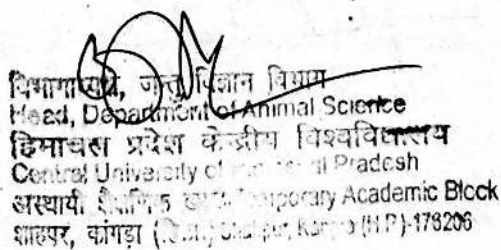 विभागाध्यक्ष, जन्तु विज्ञान विभाग
Head, Department of Animal Science
हिमाचल प्रदेश केन्द्रीय विश्वविद्यालय
Central University of Himachal Pradesh
अस्थायी शैक्षणिक Temporary Academic Block
शाहपुर, कांगड़ा (हि.प्र.) Shahpur, Kangra (H.P.)-176206